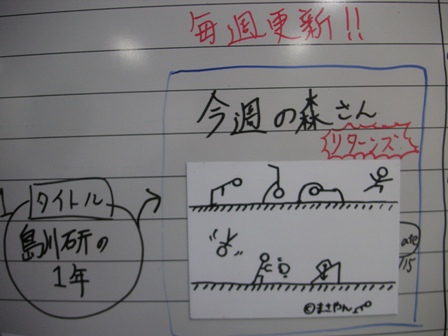 毎週更新!!
今週の森さん
リターンズ
タイトル
島川研の
1年
©まさやん